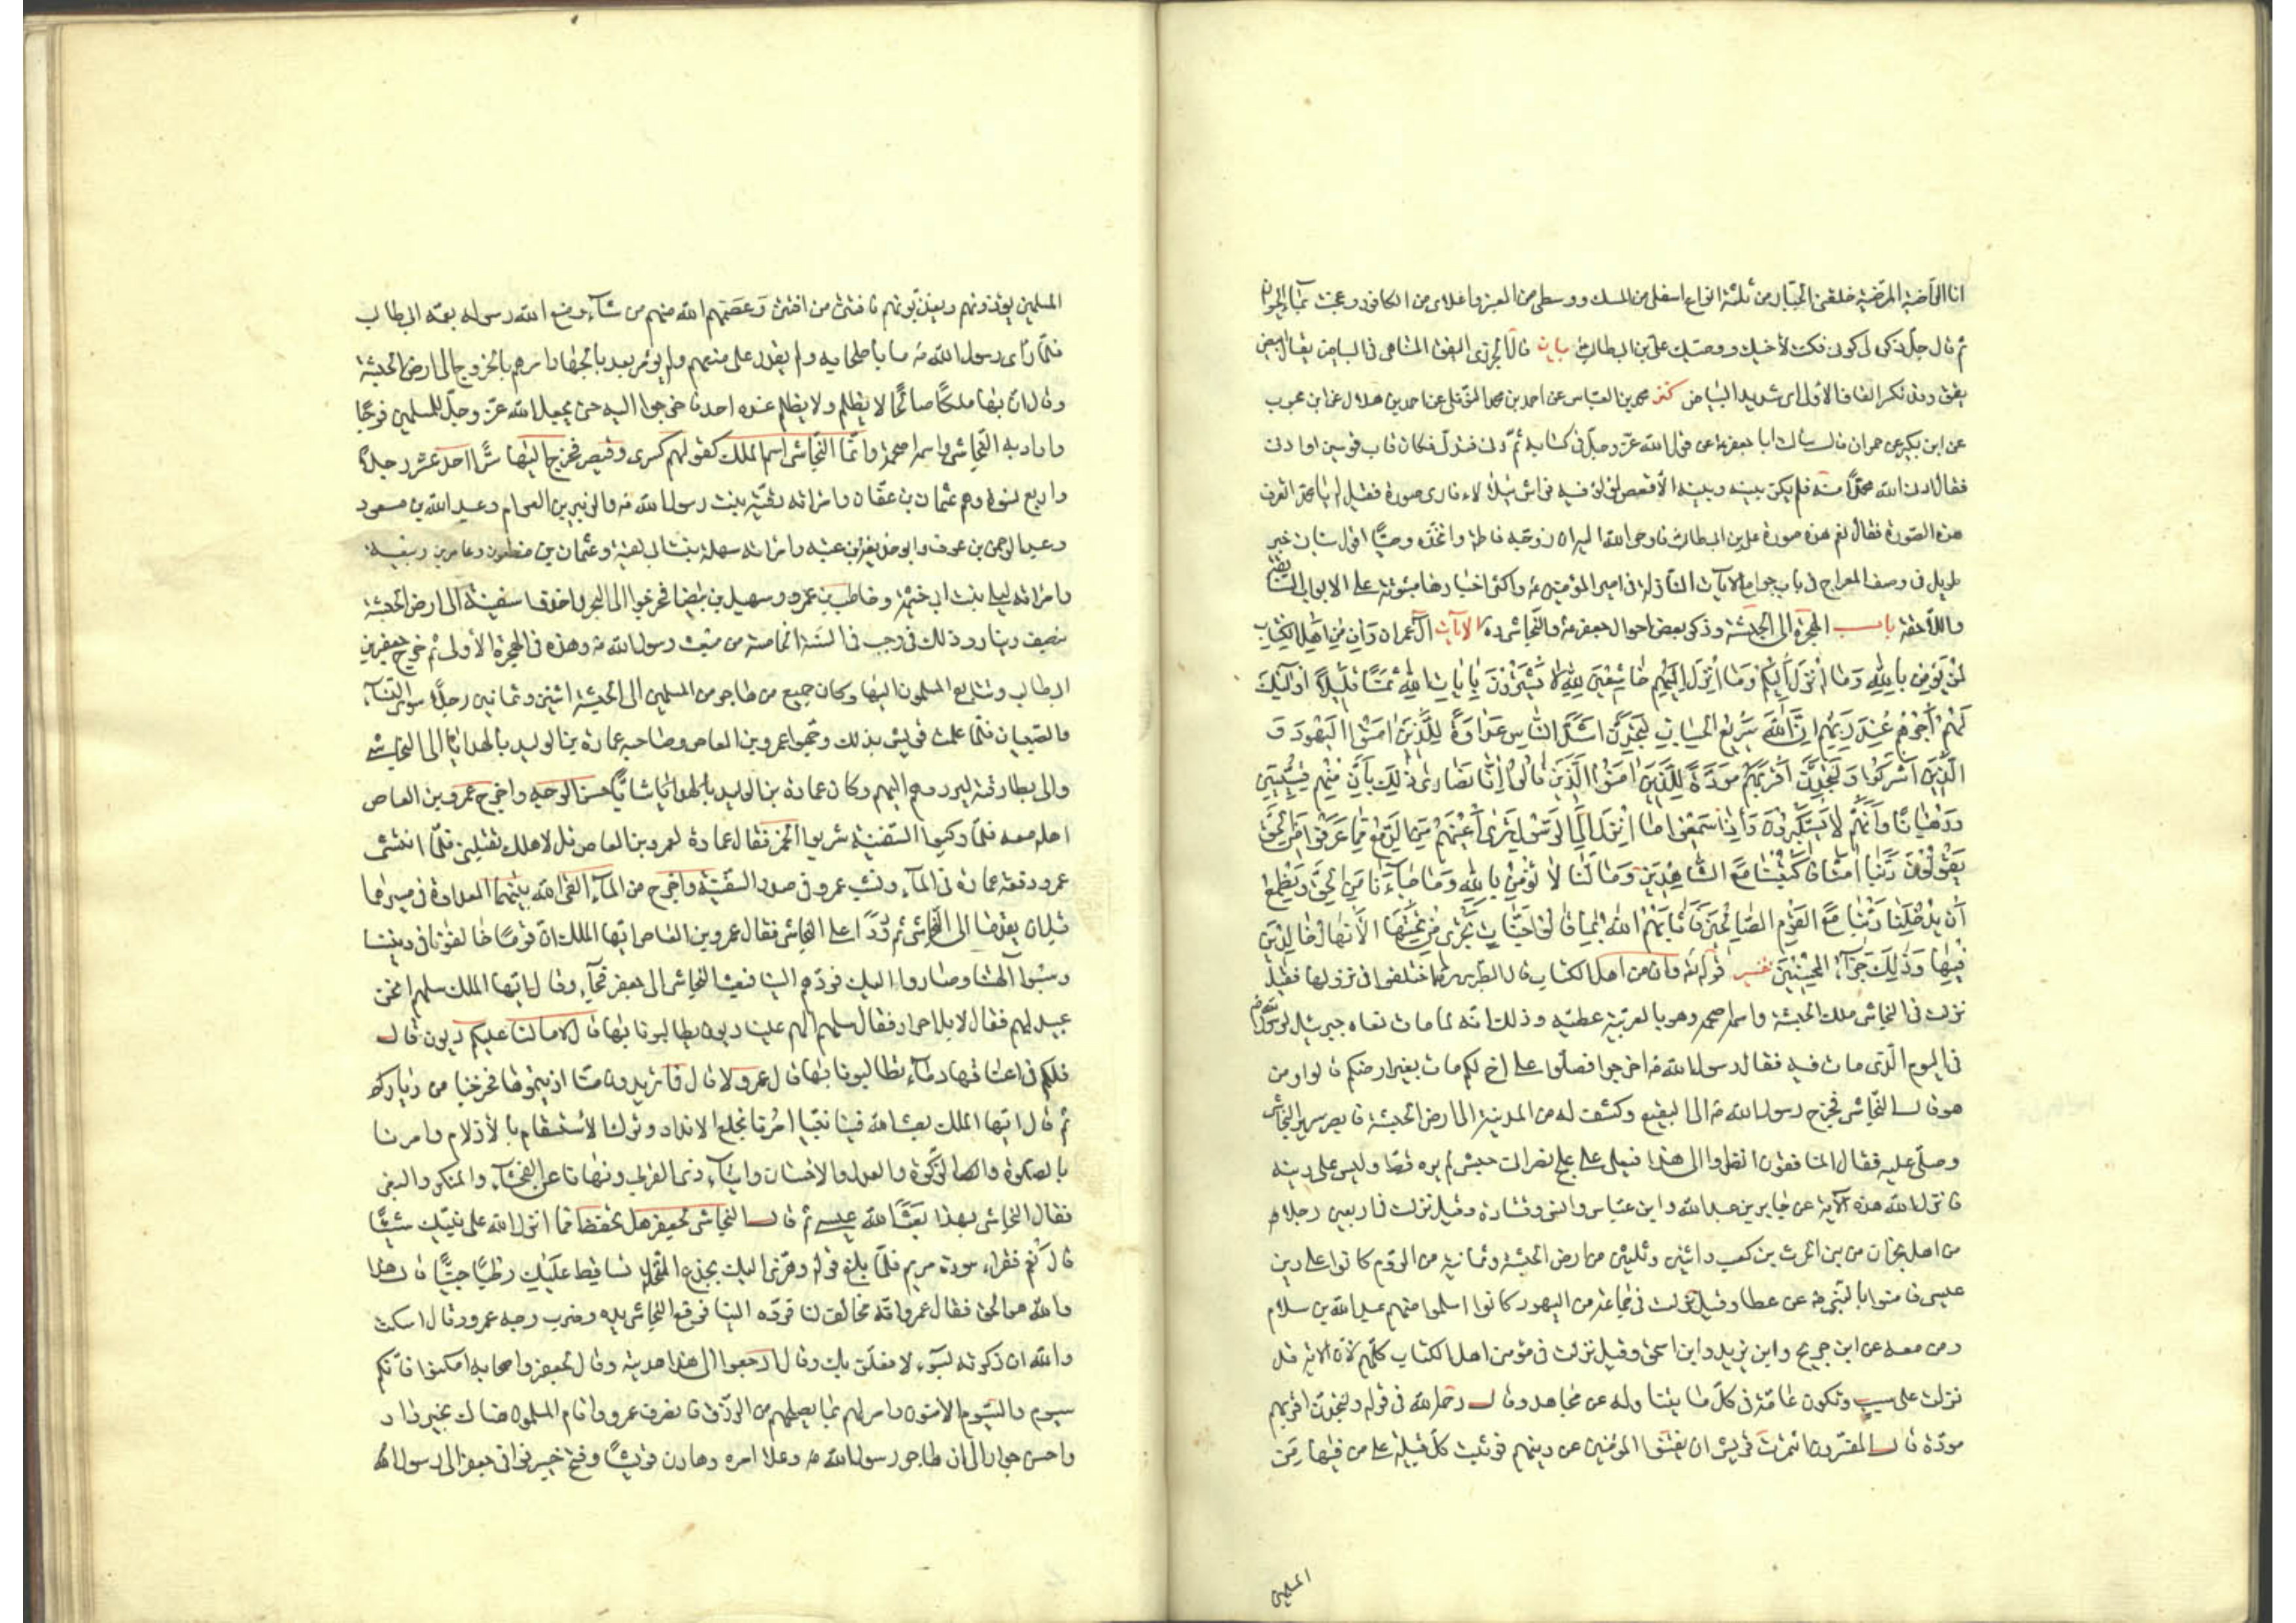 انا الراضية المرضية خلقني الجبار من ثلثة انواع اسفلي من المسك ووسطي من العنبر واعلاي من الكافور وعجنت بماء الحيوان
ثم قال جل ذكره لي كوني فكنت لأخيك ووصيك علي بن ابيطالب بيان قال الجزري اليقق المتناهي في البياض يقال ابيض
يقق وقد تكسر القاف الاولى اي شديد البياض كنز محمد بن العباس عن احمد بن محمد النوفلي عن احمد بن هلال عن ابن محبوب
عن ابن بكير عن حمران قال سألت ابا جعفر ع عن قول الله عز وجل في كتابه ثم دنى فتدلى فكان قاب قوسين او ادنى
فقال ادنى الله محمدا منه فلم يكن بينه وبينه الا قفص لؤلؤ فيه فراش يتلألأ فارى صورة فقيل له يا محمد اتعرف
هذه الصورة فقال نعم هذه صورة علي بن ابيطالب فاوحى الله اليه ان زوجه فاطمة واتخذه وصيا اقول سيأتي خبر
طويل في وصف المعراج في باب جوامع الآيات النازلة في امير المؤمنين ع واكثر اخبارها مبثوثة على الابواب السابقة
واللاحقة باب الهجرة الى الحبشة وذكر بعض احوال جعفر ع والنجاشي ره الآيات آل عمران وَاِنَّ مِنْ اَهْلِ الْكِتَابِ
لَمَنْ يُؤْمِنُ بِاللهِ وَمَا اُنْزِلَ اِلَيْكُمْ وَمَا اُنْزِلَ اِلَيْهِمْ خَاشِعِينَ لِلّٰهِ لَا يَشْتَرُونَ بِآيَاتِ اللهِ ثَمَنًا قَلِيلًا اُولٰئِكَ
لَهُمْ اَجْرُهُمْ عِنْدَ رَبِّهِمْ اِنَّ اللهَ سَرِيعُ الْحِسَابِ لَتَجِدَنَّ اَشَدَّ النَّاسِ عَدَاوَةً لِلَّذِينَ اٰمَنُوا الْيَهُودَ وَ
الَّذِينَ اَشْرَكُوا وَلَتَجِدَنَّ اَقْرَبَهُمْ مَوَدَّةً لِلَّذِينَ اٰمَنُوا الَّذِينَ قَالُوا اِنَّا نَصَارٰى ذٰلِكَ بِاَنَّ مِنْهُمْ قِسِّيسِينَ
وَرُهْبَانًا وَاَنَّهُمْ لَا يَسْتَكْبِرُونَ وَاِذَا سَمِعُوا مَا اُنْزِلَ اِلَى الرَّسُولِ تَرٰى اَعْيُنَهُمْ تَفِيضُ مِنَ الدَّمْعِ مِمَّا عَرَفُوا مِنَ الْحَقِّ
يَقُولُونَ رَبَّنَا اٰمَنَّا فَاكْتُبْنَا مَعَ الشَّاهِدِينَ وَمَا لَنَا لَا نُؤْمِنُ بِاللهِ وَمَا جَاءَنَا مِنَ الْحَقِّ وَنَطْمَعُ
اَنْ يُدْخِلَنَا رَبُّنَا مَعَ الْقَوْمِ الصَّالِحِينَ فَاَثَابَهُمُ اللهُ بِمَا قَالُوا جَنَّاتٍ تَجْرِي مِنْ تَحْتِهَا الْاَنْهَارُ خَالِدِينَ
فِيهَا وَذٰلِكَ جَزَاءُ الْمُحْسِنِينَ تفسير قوله تع وان من اهل الكتاب قال الطبرسي ره اختلفوا في نزولها فقيل
نزلت في النجاشي ملك الحبشة واسمه اصحمة وهو بالعربية عطية وذلك انه لما مات نعاه جبرئيل لرسول الله ص
في اليوم الذي مات فيه فقال رسول الله ص اخرجوا فصلوا على اخ لكم مات بغير ارضكم قالوا ومن
هو قال النجاشي فخرج رسول الله ص الى البقيع وكشف له من المدينة الى ارض الحبشة فابصر سرير النجاشي
وصلى عليه فقال المنافقون انظروا الى هذا فيصلي على علج نصراني حبشي لم يره قط وليس على دينه
فانزل الله هذه الآية عن جابر بن عبد الله وابن عباس وانس وقتادة وقيل نزلت في اربعين رجلا
من اهل نجران من بني الحرث بن كعب واثنين وثلثين من ارض الحبشة وثمانية من الروم كانوا على دين
عيسى فامنوا بالنبي ص عن عطا وقيل نزلت في جماعة من اليهود كانوا اسلموا منهم عبد الله بن سلام
ومن معه عن ابن جريج وابن زيد وابن اسحق وقيل نزلت في مؤمني اهل الكتاب كلهم لان الاية قد
نزلت على سبب وتكون عامة في كل ما يتناوله عن مجاهد وقال رحمه الله في قوله ولتجدن اقربهم
مودة قال المفسرون ائتمرت قريش ان يفتنوا المؤمنين عن دينهم فوثبت كل قبيلة على من فيها من
المسلمين
المسلمين يؤذونهم ويعذبونهم فافتتن من افتتن وعصمهم الله منهم من شاء ومنع الله رسوله بعمه ابيطالب
فلما رأى رسول الله ص ما باصحابه ولم يقدر على منعهم ولم يؤمر بعد بالجهاد امرهم بالخروج الى ارض الحبشة
وقال ان بها ملكا صالحا لا يظلم ولا يظلم عنده احد فاخرجوا اليه حتى يجعل الله عز وجل للمسلمين فرجا
واراد به النجاشي واسمه اصحمة وانما النجاشي اسم الملك كقولهم كسرى وقيصر فخرج اليها سرا احد عشر رجلا
واربع نسوة وهم عثمان بن عفان وامرأته رقية بنت رسول الله ص والزبير بن العوام وعبد الله بن مسعود
وعبد الرحمن بن عوف وابو حذيفة بن عتبة وامرأته سهلة بنت وعثمان بن مظعون وعامر بن ربيعة
وامرأته ليلى بنت ابي خيثمة وحاطب بن عمرو وسهيل بن بيضا فخرجوا الى البحر واخذوا سفينة الى ارض الحبشة
بنصف دينار وذلك في رجب في السنة الخامسة من مبعث رسول الله ص وهذه في الهجرة الأولى ثم خرج جعفر بن
ابيطالب وتتابع المسلمون اليها وكان جميع من هاجر من المسلمين الى الحبشة اثنين وثمانين رجلا سوى النساء
والصبيان فلما علمت قريش بذلك وجهوا عمرو بن العاص وصاحبه عمارة بن الوليد بالهدايا الى النجاشي
والى بطارقته ليردوهم اليهم وكان عمارة بن الوليد شابا حسن الوجه واخرج عمرو بن العاص
اهله معه فلما ركبوا السفينة شربوا الخمر فقال عمارة لعمرو بن العاص قل لاهلك تقبلني فلما انتشى
عمرو دفعه عمارة في الماء ونشب عمرو في صدر السفينة واخرج من الماء القى الله بينهما العداوة في مسيرهما
قبل ان يقدما الى النجاشي ثم وردا على النجاشي فقال عمرو بن العاص ايها الملك ان قوما خالفونا في ديننا
وسبوا آلهتنا وصاروا اليك فردهم الينا فبعث النجاشي الى جعفر فجاء وقال ايها الملك سلهم انحن
عبيد لهم فقال لا بل احرار فقال سلهم الهم علينا ديون يطالبونا بها قال لا ما لنا عليكم ديون قال
فلكم في اعناقنا دماء تطالبونا بها قال عمرو لا قال فما تريدون منا اذيتمونا فخرجنا من دياركم
ثم قال ايها الملك بعث الله فينا نبيا امرنا بخلع الانداد وترك الاستقسام بالازلام وامرنا
بالصلوة والزكوة والعدل والاحسان وايتاء ذي القربى ونهانا عن الفحشاء والمنكر والبغي
فقال النجاشي بهذا بعث الله عيسى ثم قال النجاشي لجعفر هل تحفظ مما انزل الله على نبيك شيئا
قال نعم فقرأ سورة مريم فلما بلغ قوله وهزي اليك بجذع النخلة تساقط عليك رطبا جنيا قال هذا
والله هو الحق فقال عمرو انه مخالف لنا فرده الينا فرفع النجاشي يده وضرب وجه عمرو وقال اسكت
والله ان ذكرته بسوء لافعلن بك وقال ارجعوا الى هذا هديته وقال لجعفر واصحابه امكثوا فانكم
سيوم والسيوم الآمنون وامر لهم بما يصلحهم من الرزق فانصرف عمرو واقام المسلمون هناك بخير دار
واحسن جوار الى ان هاجر رسول الله ص وعلا امره وهادن قريشا وفتح خيبر فوافى جعفر الى رسول الله